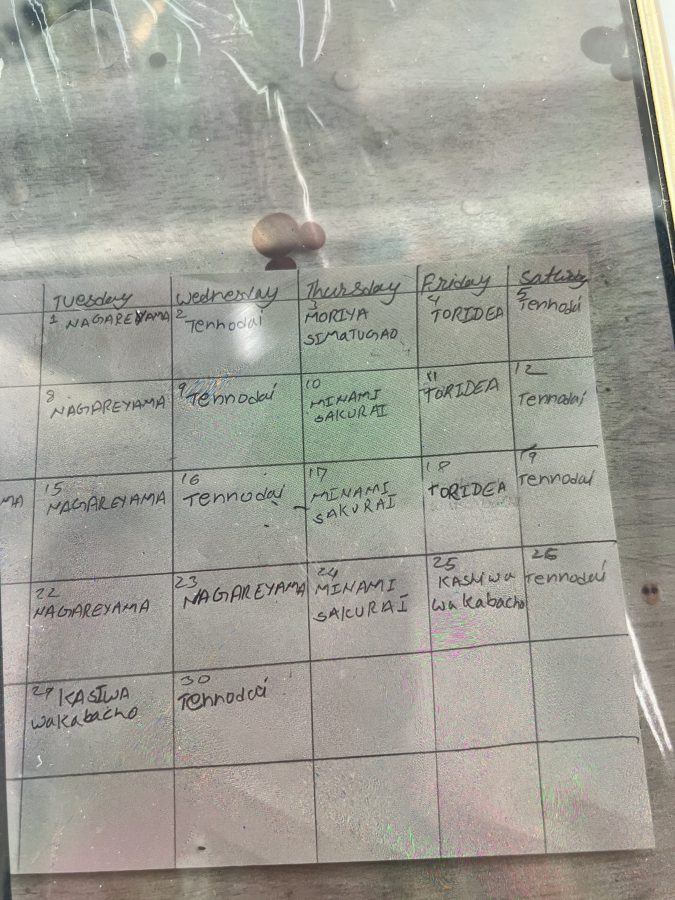 Tuesday Wednesday Thursday Friday
1 NAGAREYAMA 2 Tennodai 3 MORIYA SIMATUGAO 4 TORIDEA 5 Tennodai
8 NAGAREYAMA 9 Tennodai 10 MINAMI SAKURAI 11 TORIDEA 12 Tennodai
MA 15 NAGAREYAMA 16 Tennodai 17 MINAMI SAKURAI 18 TORIDEA 19 Tennodai
22 NAGAREYAMA 23 NAGAREYAMA 24 MINAMI SAKURAI 25 KASIWA wakabacho 26 Tennodai
29 KASIWA wakabacho 30 Tennodai